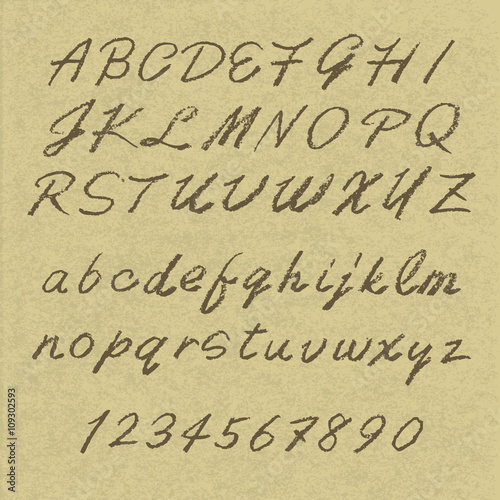 ABCDEFGHI
JKLMNOPQ
RSTUVWXYZ
abcdefghijklm
nopqrstuvwxyz
1234567890
Adobe Stock | #109302593